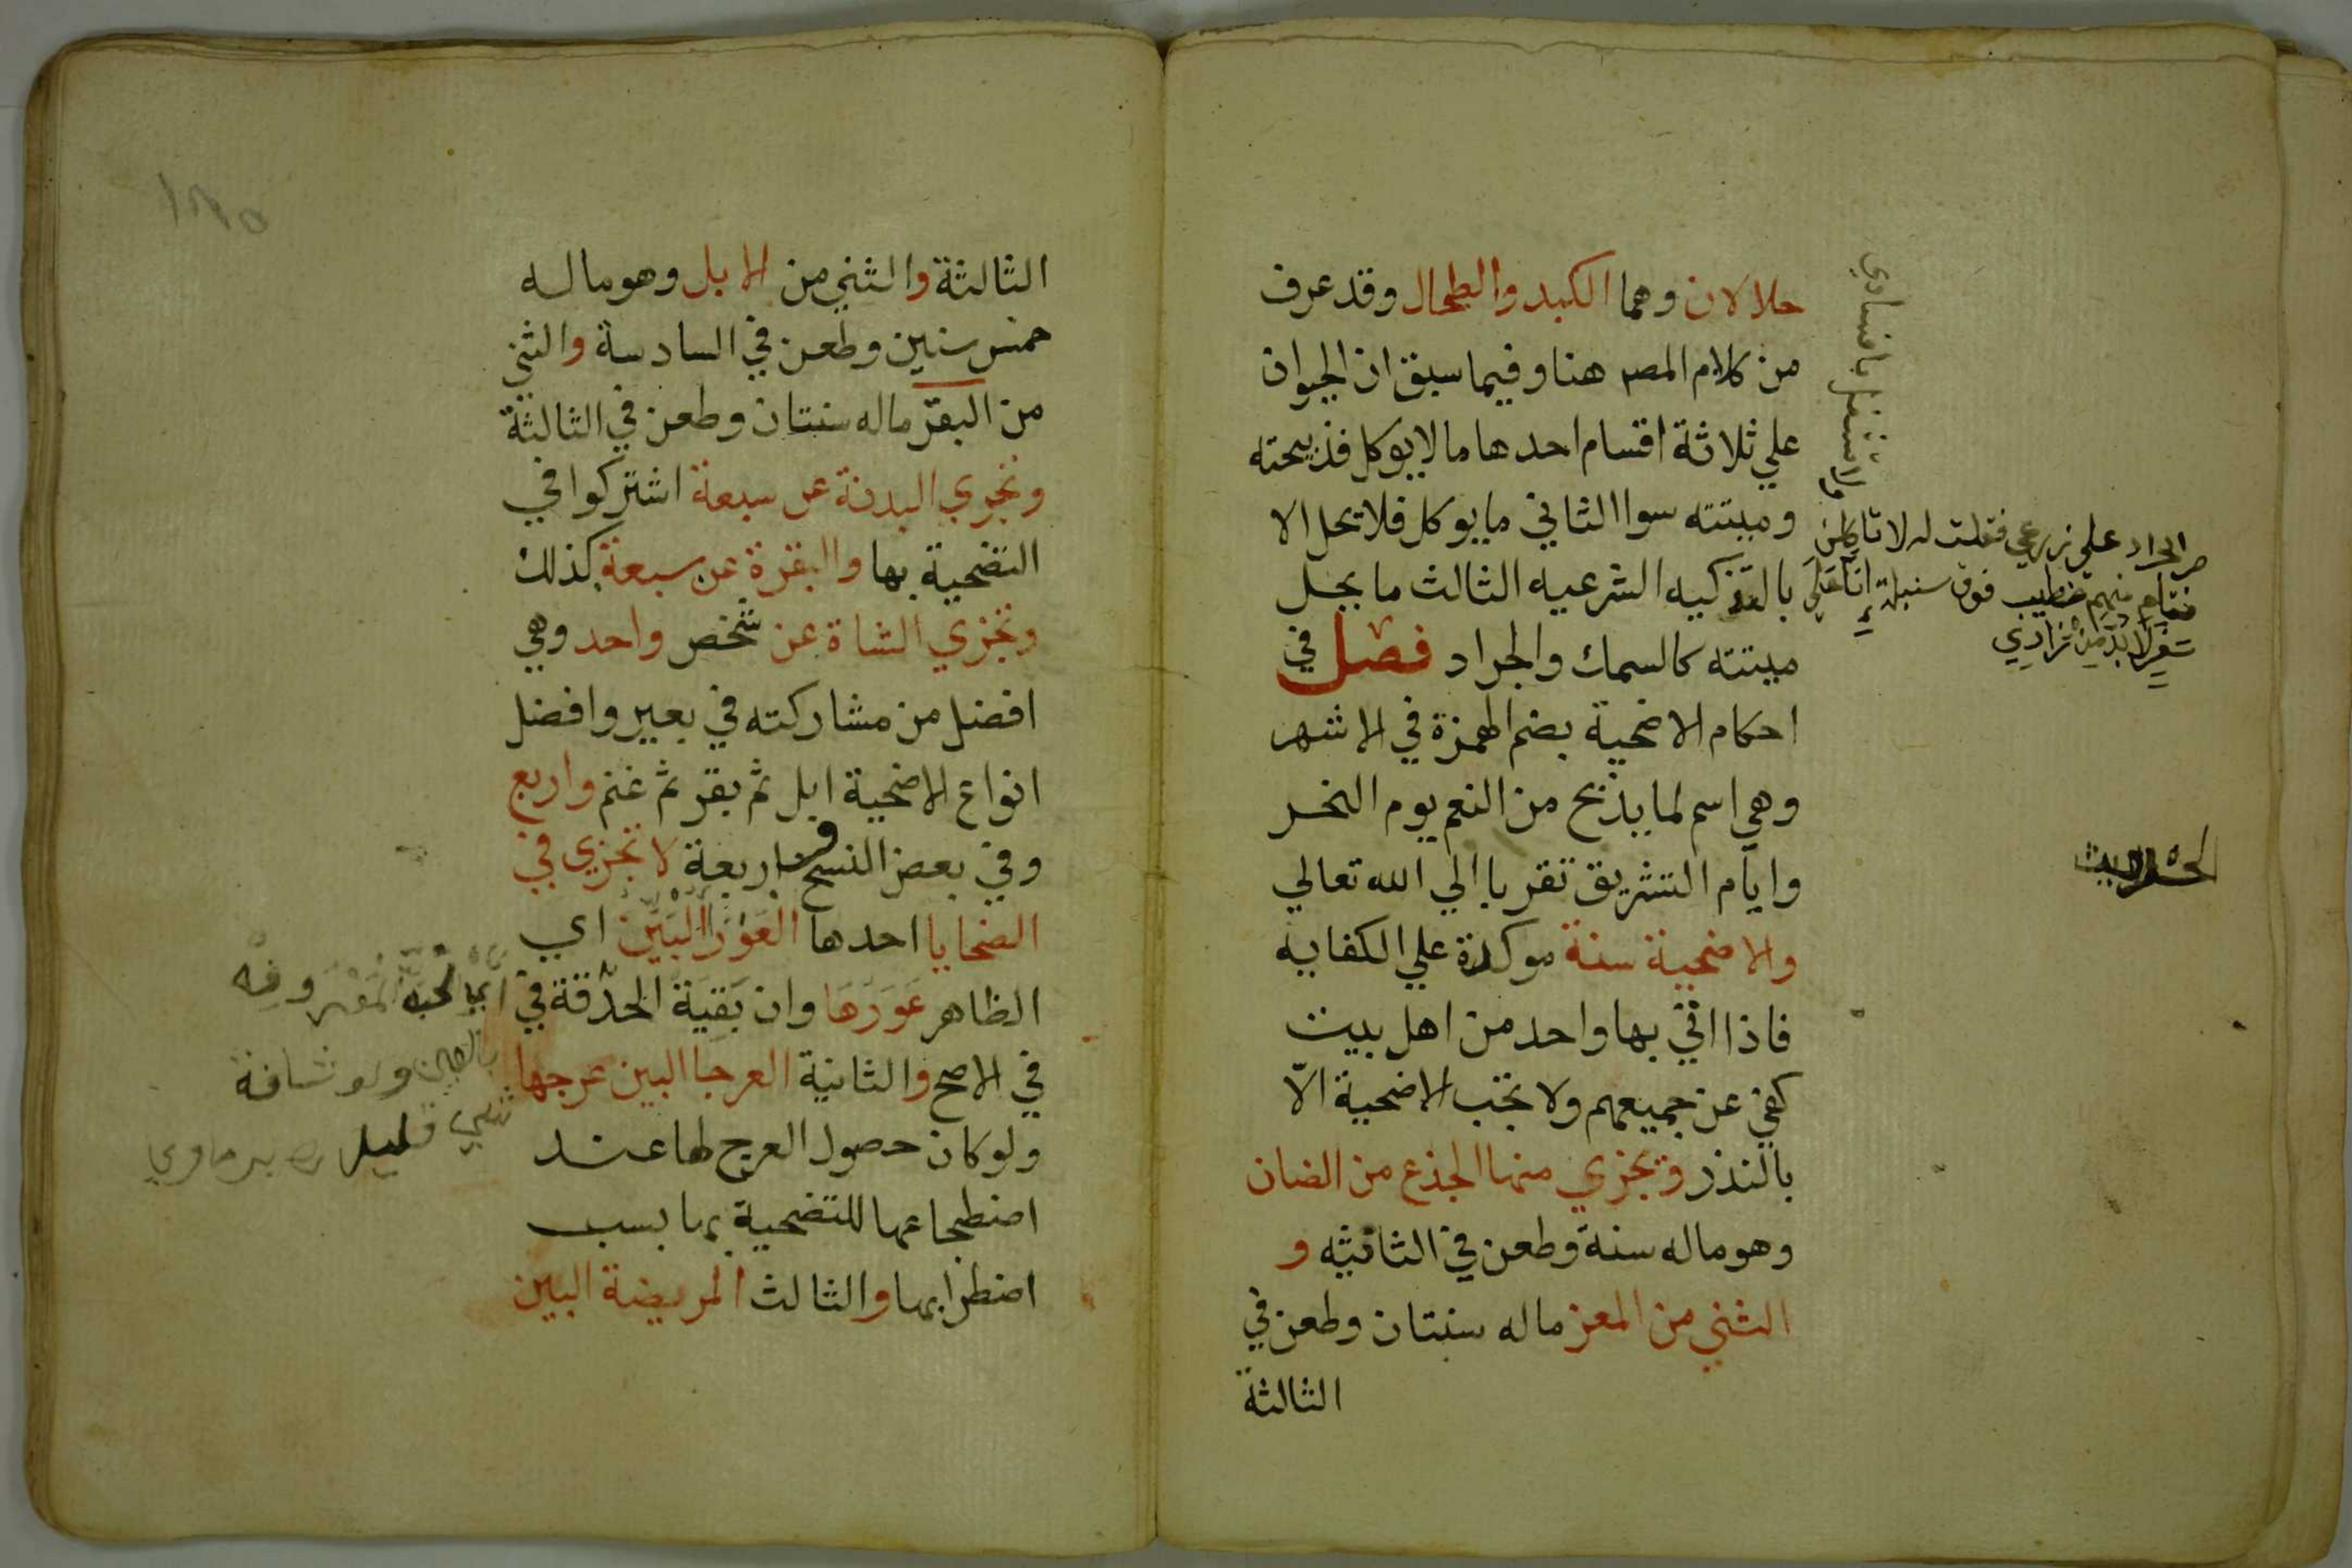 حلالان وهما الكبد والطحال وقد عرف
من كلام المصہ هنا وفيما سبق ان الحيوان
علي ثلاثة اقسام احدها ما لا يوكل فذبيحته
وميتته سوا الثاني ما يوكل فلا يحل الا
بالتذكيه الشرعيه الثالث ما يحل
ميتته كالسمك والجراد فصل في
احكام الاضحية بضم الهمزة في الاشهر
وهي اسم لما يذبح من النعم يوم النحر
وايام التشريق تقربا الي الله تعالي
والاضحية سنة موكدة علي الكفايه
فاذا اتي بها واحد من اهل بيت
كفي عن جميعهم ولا تجب الاضحية الّا
بالنذر وتجزي منها الجذع من الضان
وهو ماله سنة وطعن في الثانيه و
الثني من المعز ماله سنتان وطعن في
الثالثة
مر الجراد علي زرعي فقلت له لا تاكلن
ولا تشتغل بافسادي
فقام منهم خطيب فوق سنبلة انا علي
سفر لا بد من زادي
الثالثة والثني من الابل وهو ماله
خمس سنين وطعن في السادسة والثني
من البقر ماله سنتان وطعن في الثالثة
وتجزي البدنة عن سبعة اشتركوا في
التضحية بها والبقرة عن سبعة كذلك
وتجزي الشاة عن شخص واحد وهي
افضل من مشاركته في بعير وافضل
انواع الاضحية ابل ثم بقر ثم غنم واربع
وفي بعض النسخ واربعة لا تجزي في
الضحايا احدها العَوْرَا البَيِّن اي
الظاهر عَوَرَهَا وان بَقِيَة الحدَّقة في
في الاصح والثانية العرجا البين عرجها
ولو كان حصول العرج لها عند
اضطجاعها للتضحية بها بسب
اضطرابها والثالث المريضة البين
المعروفه
بالعين ولو شافة
شي قليل برماوي